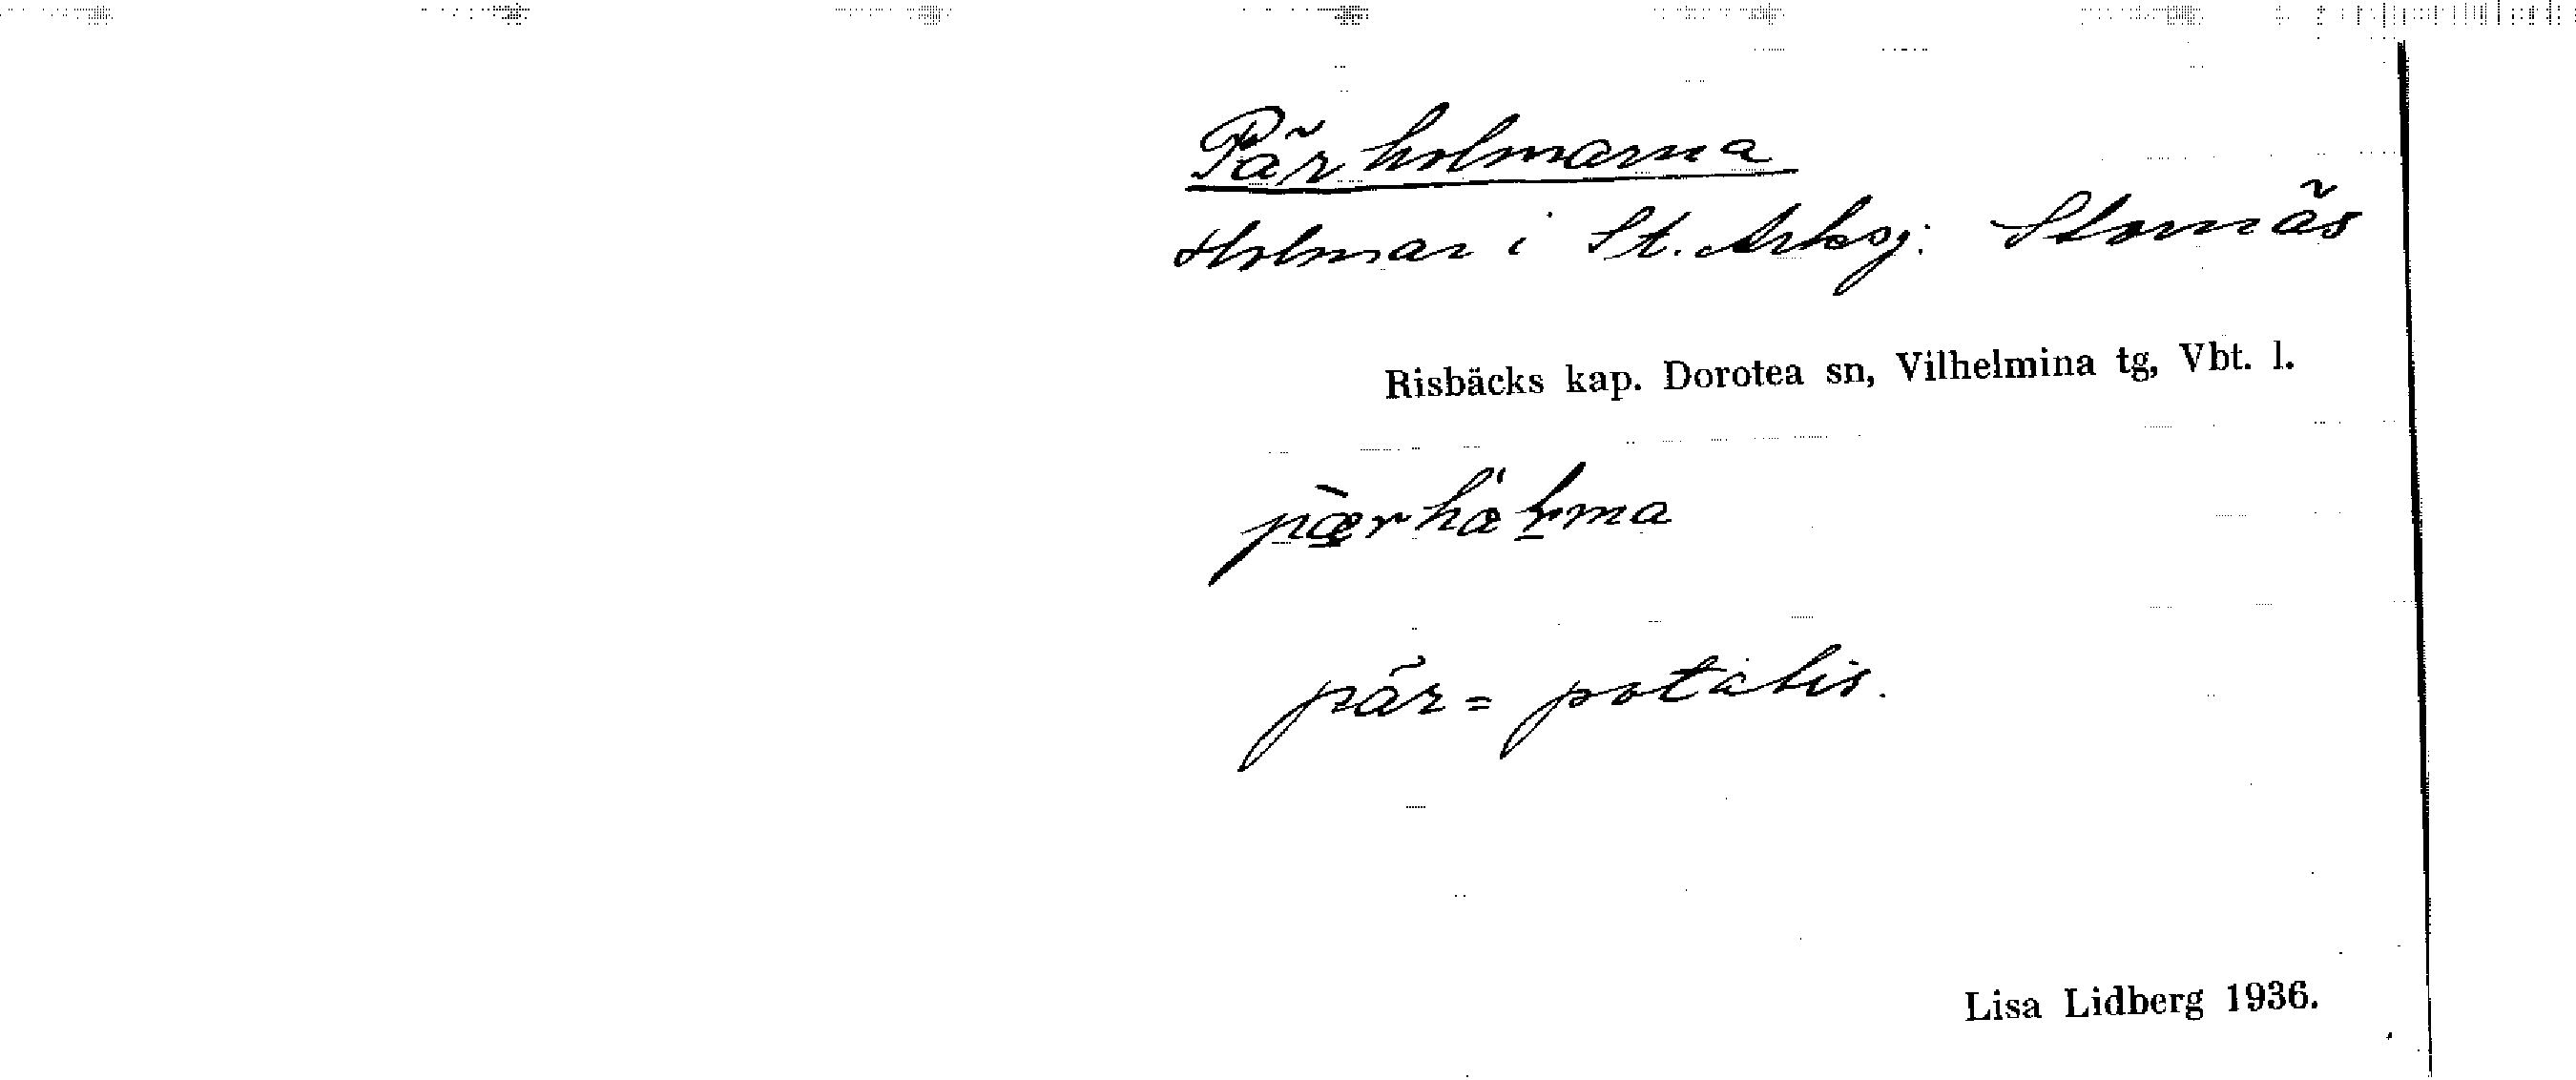 Pärholmarna
Holmar i St. Arksj: Stornäs
Risbäcks kap. Dorotea sn, Vilhelmina tg, Vbt. l.
pär = potatis.
Lisa Lidberg 1936.